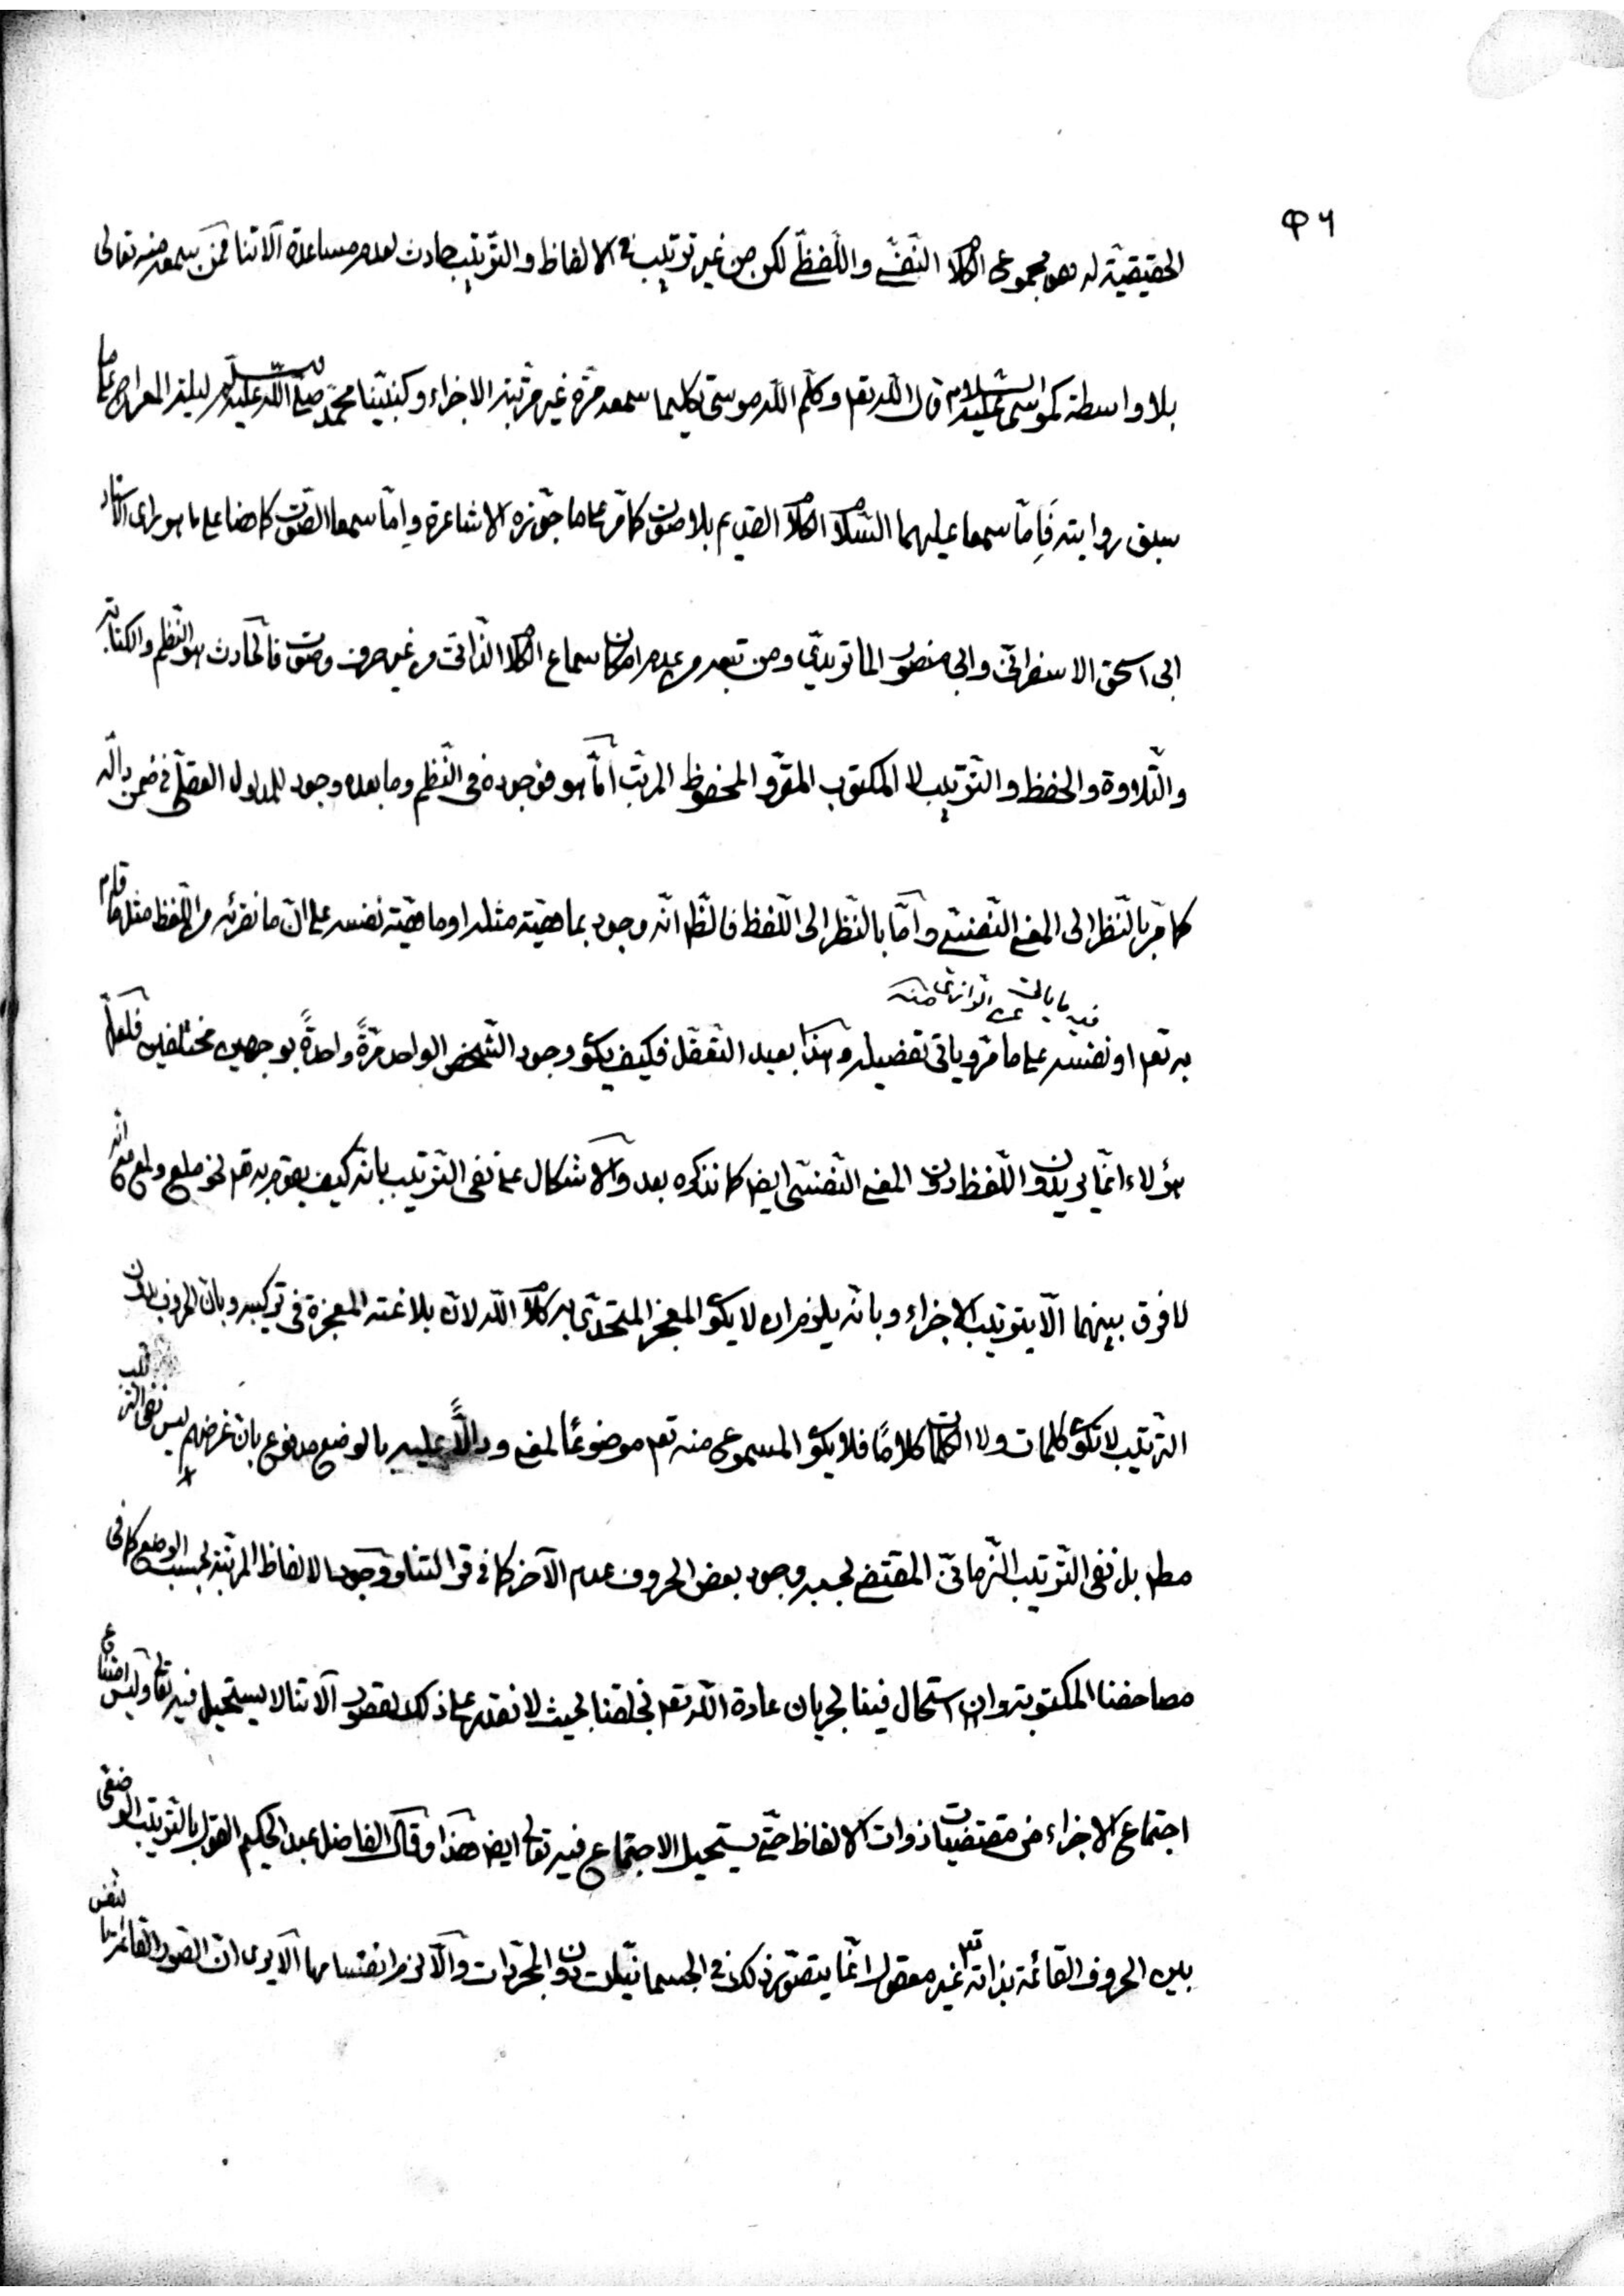 ٤٦
الحقيقية له وهو مجموع الكلام النفسي واللفظي لكن من غير ترتيب في الالفاظ والترتيب حادث لعدم مساعدة آلاتنا فمن سمعه منه تعالى
بلا واسطة كموسى عليه السلام قال الله تعم وكلم الله موسى تكليما سمعه مرة غير مرتبة الاجزاء وكنبينا محمد صلى الله عليه وسلم ليلة المعراج على ما
سبق روايته فإما سمعا عليهما السلام الكلام القديم بلا صوت كما مر على ما جوزه الاشاعرة وإما سمعا الصوت كما هنا على ما هو راى الاستاد
ابى اسحق الاسفرائني وابى منصور الماتريدي ومن تبعه من عدم امكان سماع الكلام الذاتي من غير حرف وصوت فالحادث هو النظم والكتابة
والتلاوة والحفظ والترتيب لا المكتوب المقرو المحفوظ المرتب أما هو فوجوده في النظم وما بعده وجود للمدلول العقلي في ضمن داله
كما مر بالنظر الى المعنى النفسي وأما بالنظر الى اللفظ فالظ انه وجود بماهية مثله او ماهية نفسه على ان ما نقرئه من اللفظ مثل ما قام
فيه ما يأتى عن الدواني منه
به تعم او نفسه على ما مر ويأتى تفصيله وهذا بعيد التعقل فكيف يكون وجود الشخص الواحد مرةً واحدةً بوجهين مختلفين فلعل
هؤلاء انما يريدون اللفظ دون المعنى النفسي ايضا كما نذكره بعد والاشكال على نفى الترتيب بانه كيف يقوم به تعم نحو ملع ولمع مع انه
لا فرق بينهما الا بترتيب الاجزاء وبانه يلزم ان لا يكون المعجز المتحدى به كلام الله لان بلاغته المعجزة في تركيبه وبان الحروف بدون
الترتيب لا تكون كلمات ولا الكلمات كلامًا فلا يكون المسموع منه تعم موضوعًا لمعنى ودالًا عليه بالوضع مدفوع بان غرضهم ليس نفى الترتيب
مطم بل نفى الترتيب الزماني المقتضي لحبه وجود بعض الحروف عدم الآخر كما في قرائتنا ووجود الالفاظ المرتبة بحسب الوضع كما في
مصاحفنا المكتوبة وان استحال فينا لجريان عادة الله تعم في خلقنا بحيث لا نقدر على ذلك لقصور آلاتنا لا يستحيل فيه تعالى وليس امتناع
اجتماع الاجزاء من مقتضيات ذوات الالفاظ حتى يستحيل الاجتماع فيه تعالى ايضا هذا وقال الفاضل عبد الحكيم القول بالترتيب الوضعي
بين الحروف القائمة بذاته تعم غير معقول انما يتصور ذلك في الجسمانيات دون المجردات والا لزم انقسامها الا يرى ان الصور القائمة بالنفس